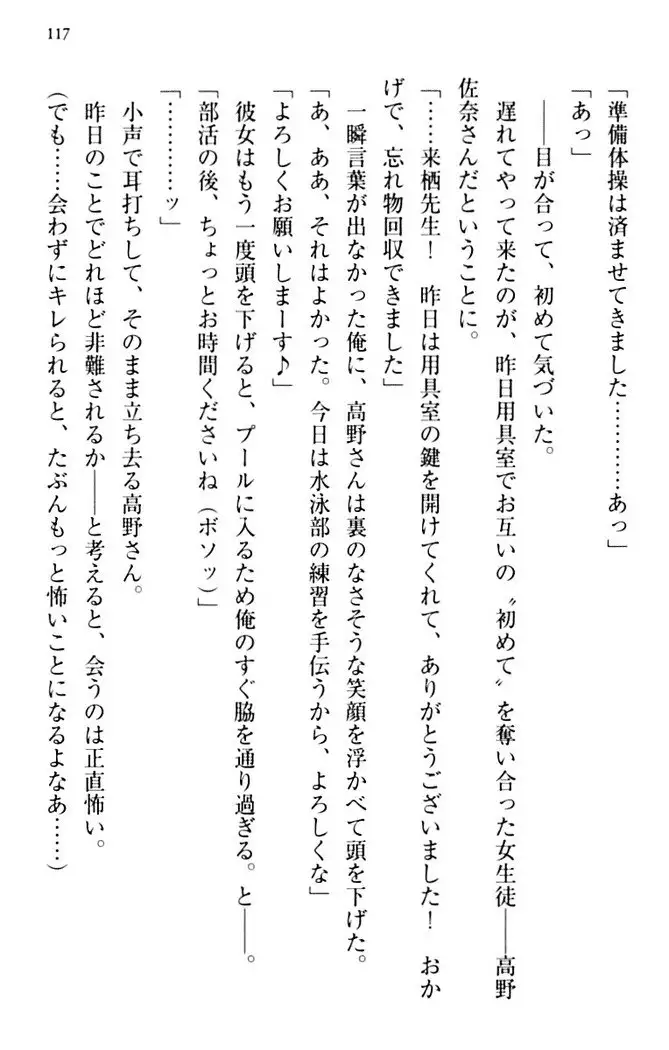 117
「準備体操は済ませてきました…………あっ」
「あっ」
――目が合って、初めて気づいた。
遅れてやって来たのが、昨日用具室でお互いの〝初めて〟を奪い合った女生徒――高野
佐奈さんだということに。
「……来栖先生！　昨日は用具室の鍵を開けてくれて、ありがとうございました！　おか
げで、忘れ物回収できました」
一瞬言葉が出なかった俺に、高野さんは裏のなさそうな笑顔を浮かべて頭を下げた。
「あ、ああ、それはよかった。今日は水泳部の練習を手伝うから、よろしくな」
「よろしくお願いしまーす♪」
彼女はもう一度頭を下げると、プールに入るため俺のすぐ脇を通り過ぎる。と――。
「部活の後、ちょっとお時間くださいね（ボソッ）」
「…………ッ」
小声で耳打ちして、そのまま立ち去る高野さん。
昨日のことでどれほど非難されるか――と考えると、会うのは正直怖い。
（でも……会わずにキレられると、たぶんもっと怖いことになるよなあ……）